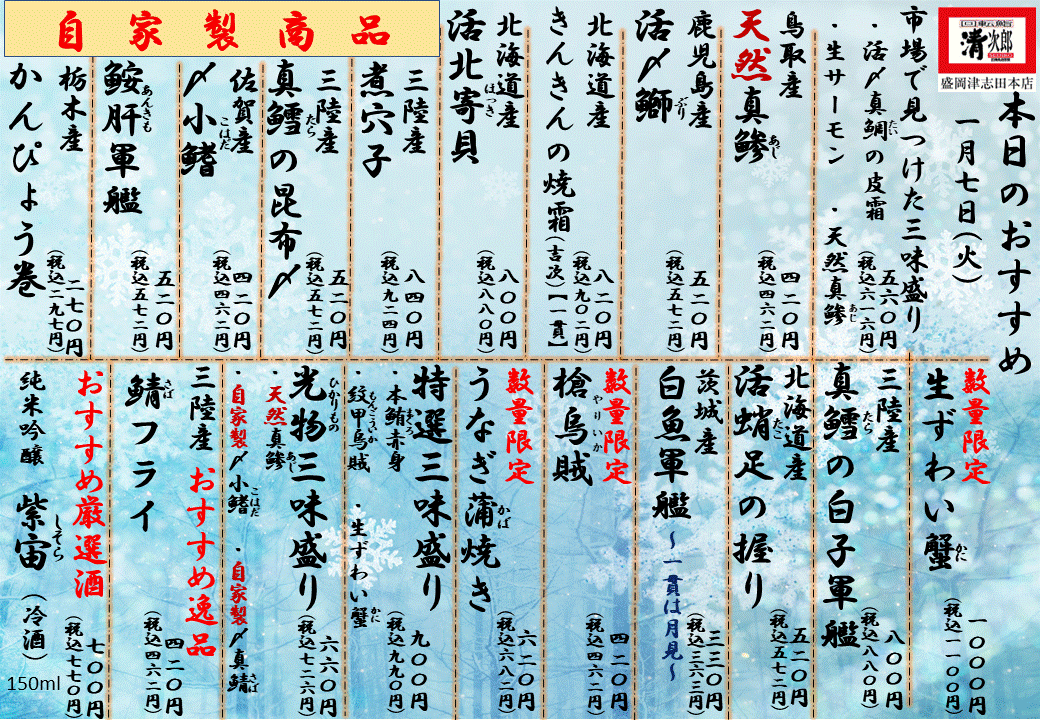 回転鮨
清次郎
盛岡津志田本店
本日のおすすめ
一月七日(火)
市場で見つけた三味盛り
・活〆真鯛の皮霜
たい
・生サーモン ・天然真鯵
あじ
五六〇円
(税込六一六円)
鳥取産
天然真鯵
あじ
四二〇円
(税込四六二円)
鹿児島産
活〆鰤
ぶり
五二〇円
(税込五七二円)
北海道産
きんきんの焼霜(吉次)【一貫】
八二〇円
(税込九〇二円)
北海道産
活北寄貝
ほっき
八〇〇円
(税込八八〇円)
自家製商品
三陸産
煮穴子
八四〇円
(税込九二四円)
三陸産
真鱈の昆布〆
たら
五二〇円
(税込五七二円)
佐賀産
〆小鰭
こはだ
四二〇円
(税込四六二円)
鮟肝軍艦
あんきも
五二〇円
(税込五七二円)
栃木産
かんぴょう巻
二七〇円
(税込二九七円)
数量限定
生ずわい蟹
かに
一〇〇〇円
(税込一一〇〇円)
三陸産
真鱈の白子軍艦
たら
八〇〇円
(税込八八〇円)
北海道産
活蛸足の握り
たこ
五二〇円
(税込五七二円)
茨城産
白魚軍艦
~一貫は月見~
三三〇円
(税込三六三円)
数量限定
槍烏賊
やりいか
四二〇円
(税込四六二円)
数量限定
うなぎ蒲焼き
かば
六二〇円
(税込六八二円)
特選三味盛り
・本鮪赤身
まぐろ
・紋甲烏賊 ・生ずわい蟹
もんこういか
かに
九〇〇円
(税込九九〇円)
光物三味盛り
ひかりもの
・天然真鯵
あじ
・自家製〆小鰭 ・自家製〆真鯖
こはだ
さば
六六〇円
(税込七二六円)
おすすめ逸品
三陸産
鯖フライ
さば
四二〇円
(税込四六二円)
おすすめ厳選酒
純米吟醸 紫宙 (冷酒)
しそら
150ml
七〇〇円
(税込七七〇円)